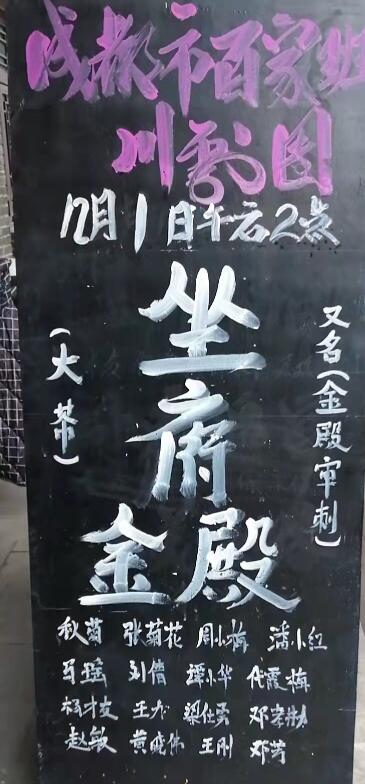 成都市百家姓
川剧团
12月1日午后2点
坐府
金殿
又名(金殿审刺)
秋菊 张菊花 周小梅 潘小红
马瑶 刘倩 谭小华 代霞梅
杨才文 梁仕勇
赵敏 黄晓伟 王刚 邓芳